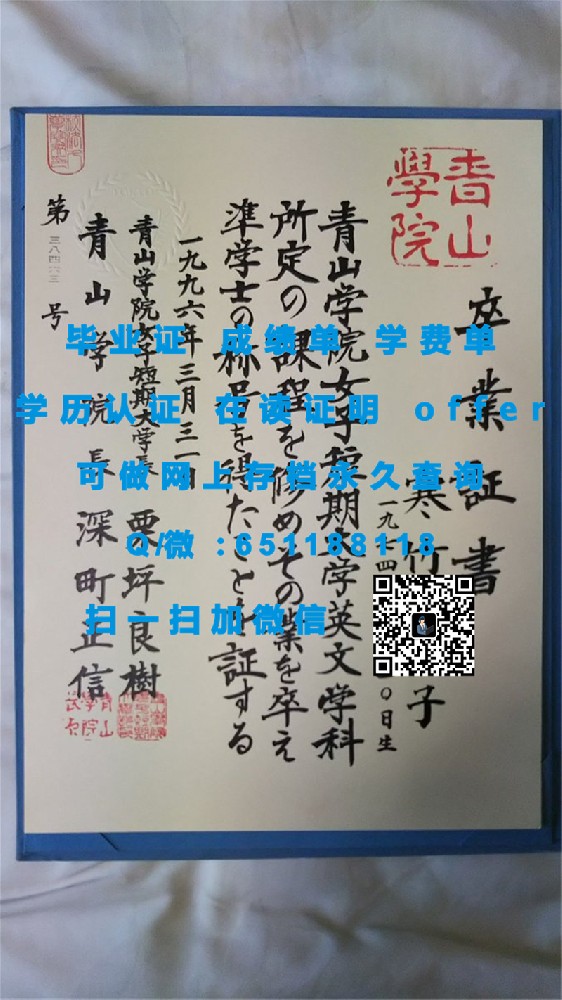 青山
學院
卒業証書
寒竹
子
一九
四
〇日生
青山学院女子短期大学英文学科
所定の課程を修めその業を卒え
準学士の称号を得たことを証する
一九九六年三月三一日
青山学院女子短期大学長 栗坪良樹
青山学院長 深町正信
第三八四六三号
毕业证 成绩单 学费单
学历认证 在读证明 offer
可做网上存档永久查询
Q/微：651188118
扫一扫加微信